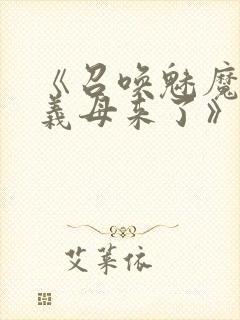 《召唤魅魔
义母来了》
艾莱依